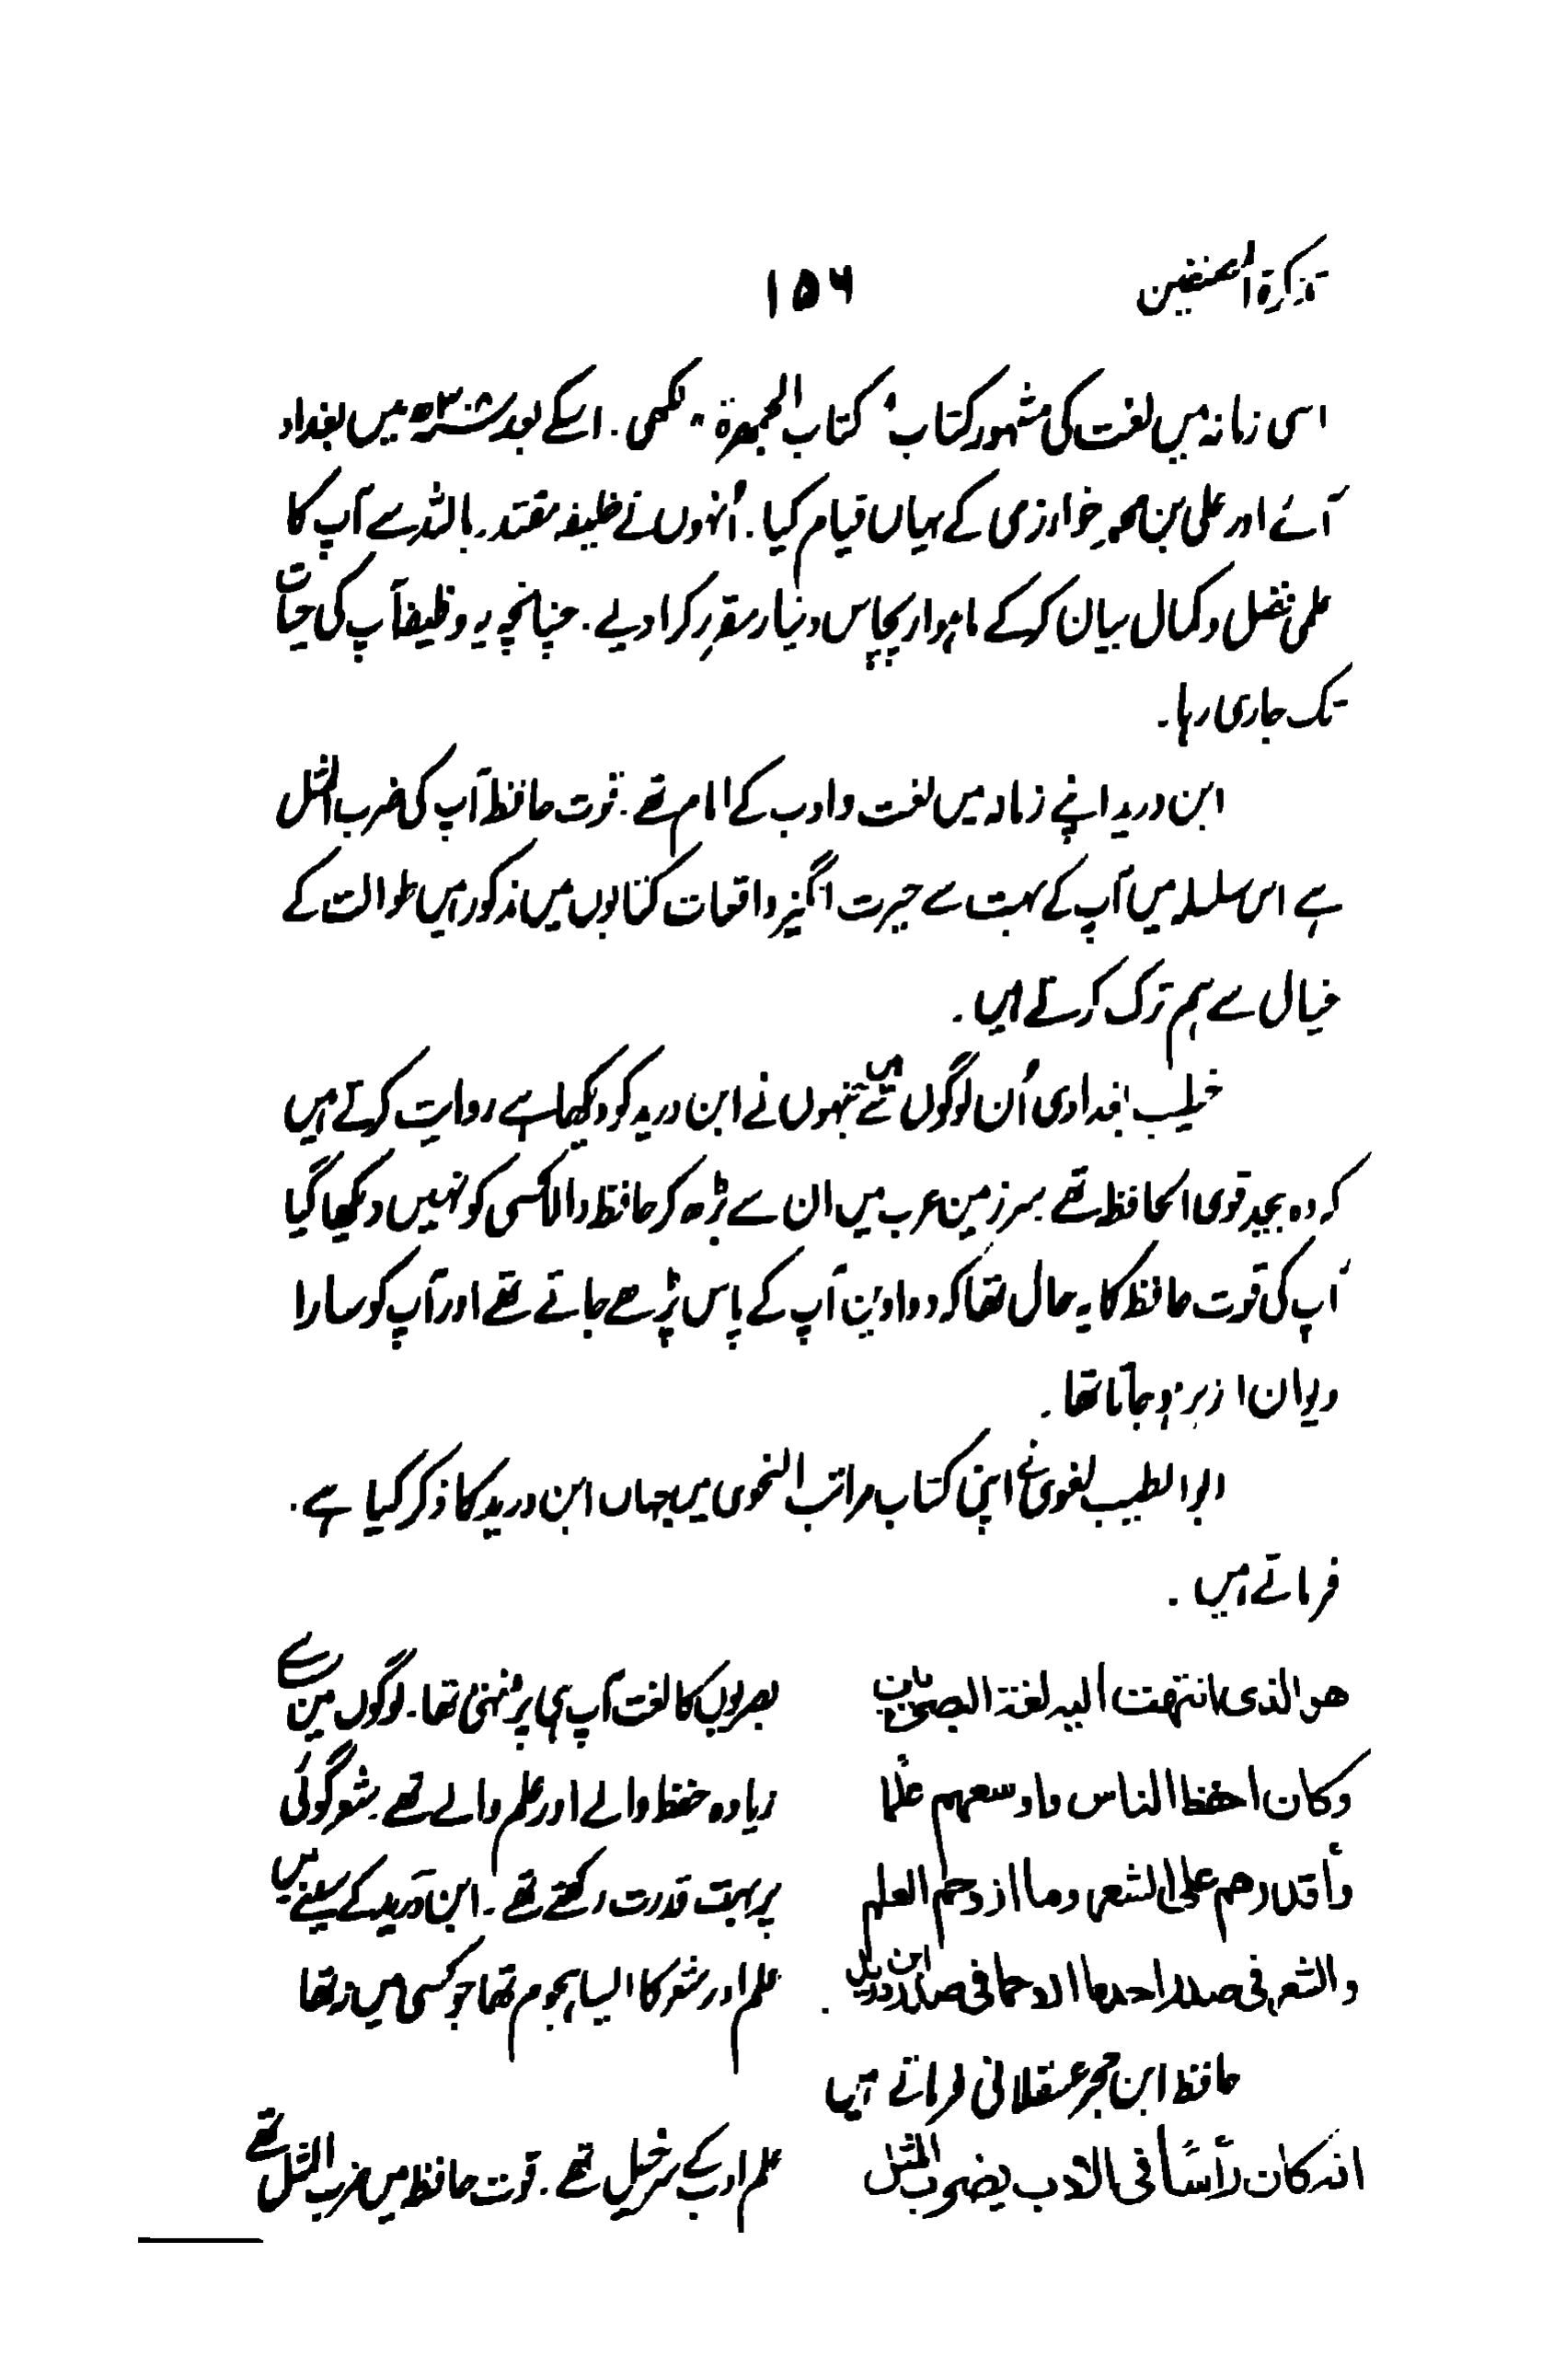 تذکرة المصنفین ۱۵۶
اسی زمانہ میں لغت کی مشہور کتاب "کتاب الجمہرة" لکھی. اسکے بعد ۳۰۸ھ میں بغداد
آئے اور علی بن محمد خوارزمی کے یہاں قیام کیا. اُنہوں نے خلیفہ مقتدر باللہ سے آپ کا
علمی فضل و کمال بیان کرکے ماہوار پچاس دینار مقرر کرا دیے. چنانچہ یہ وظیفہ آپ کی حیات
تک جاری رہا۔
ابن درید اپنے زمانہ میں لغت و ادب کے امام تھے. قوت حافظہ آپ کی ضرب المثل
ہے اس سلسلہ میں آپ کے بہت سے حیرت انگیز واقعات کتابوں میں مذکور ہیں طوالت کے
خیال سے ہم ترک کرتے ہیں.
خطیب بغدادی اُن لوگوں سے جنہوں نے ابن درید کو دیکھا ہے روایت کرتے ہیں
کہ وہ بیحد قوی الحافظہ تھے سرزمین عرب میں ان سے بڑھ کر حافظہ والا کسی کو نہیں دیکھا گیا
آپ کی قوت حافظہ کا یہ حال تھا کہ دواوین آپ کے پاس پڑھے جاتے تھے اور آپ کو سارا
دیوان ازبر ہو جاتا تھا.
ابوالطیب لغوی نے اپنی کتاب مراتب النحوی میں جہاں ابن درید کا ذکر کیا ہے.
فرماتے ہیں.
ھو الذی انتھت الیہ لغة البصریین بصریوں کا لغت آپ ہی پر منتہی تھا. لوگوں میں سے
وکان احفظ الناس واوسعھم علما زیادہ حفظ والے اور علم والے تھے. شعر گوئی
وأقدرھم علی الشعر وما ازدحم العلم پر بہت قدرت رکھتے تھے۔ ابن درید کے سینے میں
والشعر فی صدر احد ما ازدحما فی صدر ابن درید. علم اور شعر کا ایسا ہجوم تھا جو کسی میں نہ تھا
حافظ ابن حجر عسقلانی فرماتے ہیں
انہ کان رأسًا فی الادب یضرب المثل علم ادب کے سرخیل تھے. قوت حافظہ میں ضرب المثل تھے